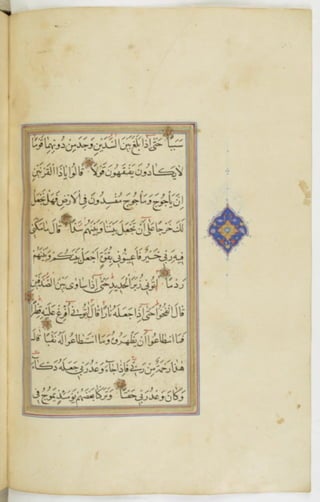 سَبَبًا حَتّٰى اِذَا بَلَغَ بَيْنَ السَّدَّيْنِ وَجَدَ مِنْ دُونِهِمَا قَوْمًا
لَا يَكَادُونَ يَفْقَهُونَ قَوْلًا قَالُوا يَا ذَا الْقَرْنَيْنِ
اِنَّ يَأْجُوجَ وَمَأْجُوجَ مُفْسِدُونَ فِي الْاَرْضِ فَهَلْ نَجْعَلُ
لَكَ خَرْجًا عَلٰى اَنْ تَجْعَلَ بَيْنَنَا وَبَيْنَهُمْ سَدًّا قَالَ مَا مَكَّنِّي
فِيهِ رَبِّي خَيْرٌ فَاَعِينُونِي بِقُوَّةٍ اَجْعَلْ بَيْنَكُمْ وَبَيْنَهُمْ
رَدْمًا اٰتُونِي زُبَرَ الْحَدِيدِ حَتّٰى اِذَا سَاوٰى بَيْنَ الصَّدَفَيْنِ
قَالَ انْفُخُوا حَتّٰى اِذَا جَعَلَهُ نَارًا قَالَ اٰتُونِي اُفْرِغْ عَلَيْهِ قِطْرًا
فَمَا اسْطَاعُوا اَنْ يَظْهَرُوهُ وَمَا اسْتَطَاعُوا لَهُ نَقْبًا قَالَ
هٰذَا رَحْمَةٌ مِنْ رَبِّي فَاِذَا جَاءَ وَعْدُ رَبِّي جَعَلَهُ دَكَّاءَ
وَكَانَ وَعْدُ رَبِّي حَقًّا وَتَرَكْنَا بَعْضَهُمْ يَوْمَئِذٍ يَمُوجُ فِي